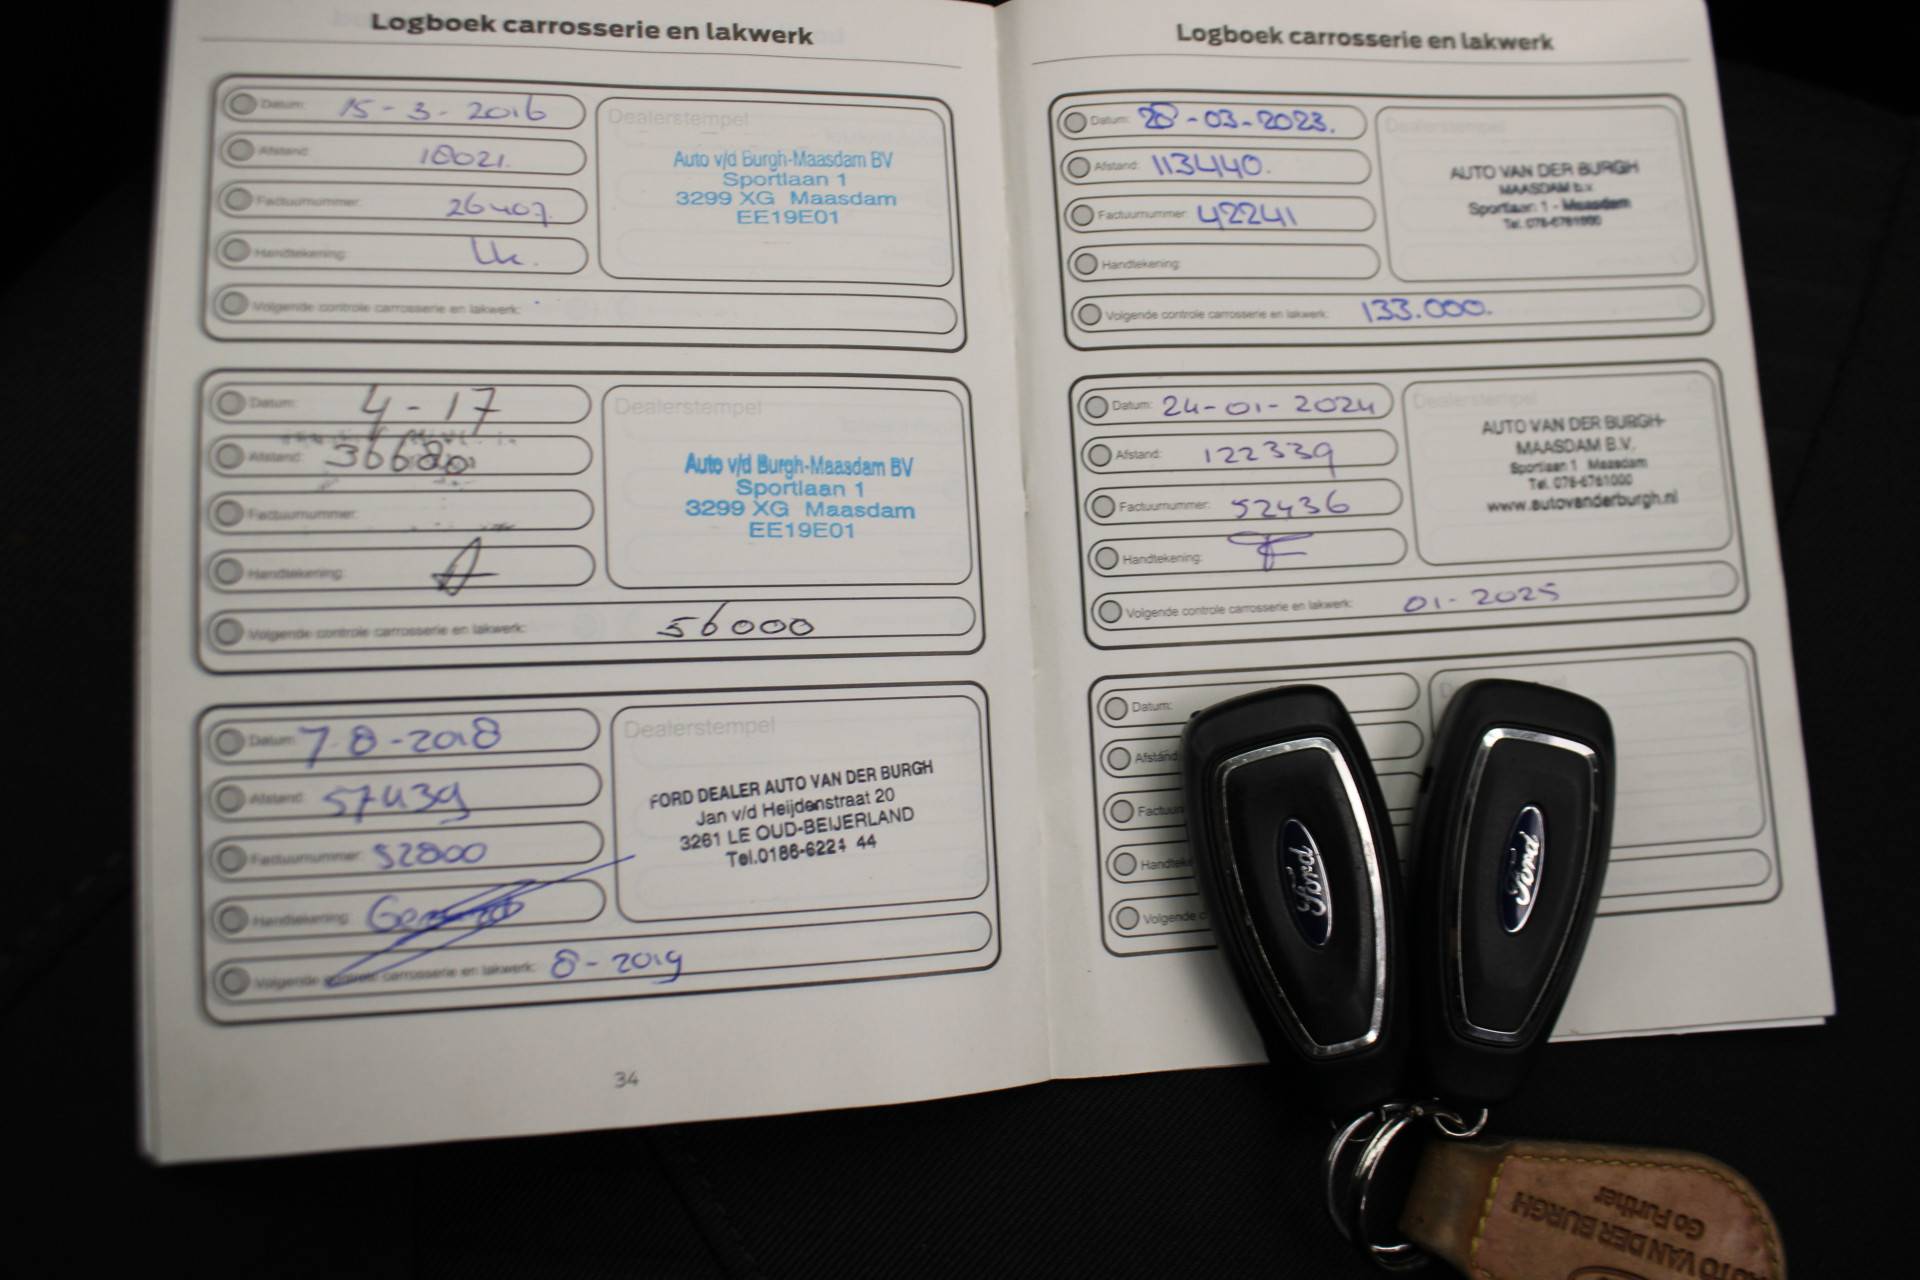 Logboek carrosserie en lakwerk
Datum: 15-3-2016
Afstand: 18021.
Factuurnummer: 26407.
Handtekening:
Volgende controle carrosserie en lakwerk:
Dealerstempel
Auto v/d Burgh-Maasdam BV
Sportlaan 1
3299 XG Maasdam
EE19E01
Datum: 4-17
Afstand: 36680
Factuurnummer:
Handtekening:
Volgende controle carrosserie en lakwerk: 56000
Dealerstempel
Auto v/d Burgh-Maasdam BV
Sportlaan 1
3299 XG Maasdam
EE19E01
Datum: 7 8-2018
Afstand: 57439
Factuurnummer: 52800
Handtekening:
Volgende controle carrosserie en lakwerk: 8-2019
Dealerstempel
FORD DEALER AUTO VAN DER BURGH
Jan v/d Heijdenstraat 20
3261 LE OUD-BEIJERLAND
Tel.0186-6221 44
34
Logboek carrosserie en lakwerk
Datum: 28-03-2023.
Afstand: 113440.
Factuurnummer: 42241
Handtekening:
Volgende controle carrosserie en lakwerk: 133.000.
Dealerstempel
AUTO VAN DER BURGH
MAASDAM b.v.
Sportlaan 1 - Maasdam
Tel. 078-6761000
Datum: 24-01-2024
Afstand: 122339
Factuurnummer: 52436
Handtekening:
Volgende controle carrosserie en lakwerk: 01-2025
Dealerstempel
AUTO VAN DER BURGH-
MAASDAM B.V.
Sportlaan 1 Maasdam
Tel. 078-6761000
www.autovanderburgh.nl
Datum:
Afstand
Factuu
Handteke
Volgende c
Ford
Ford
AUTO VAN DER BURGH
Go Further